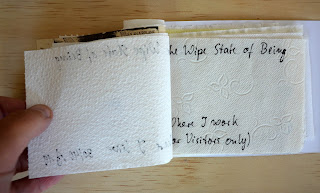 the Wipe State of Being
Where I work
for Visitors only)